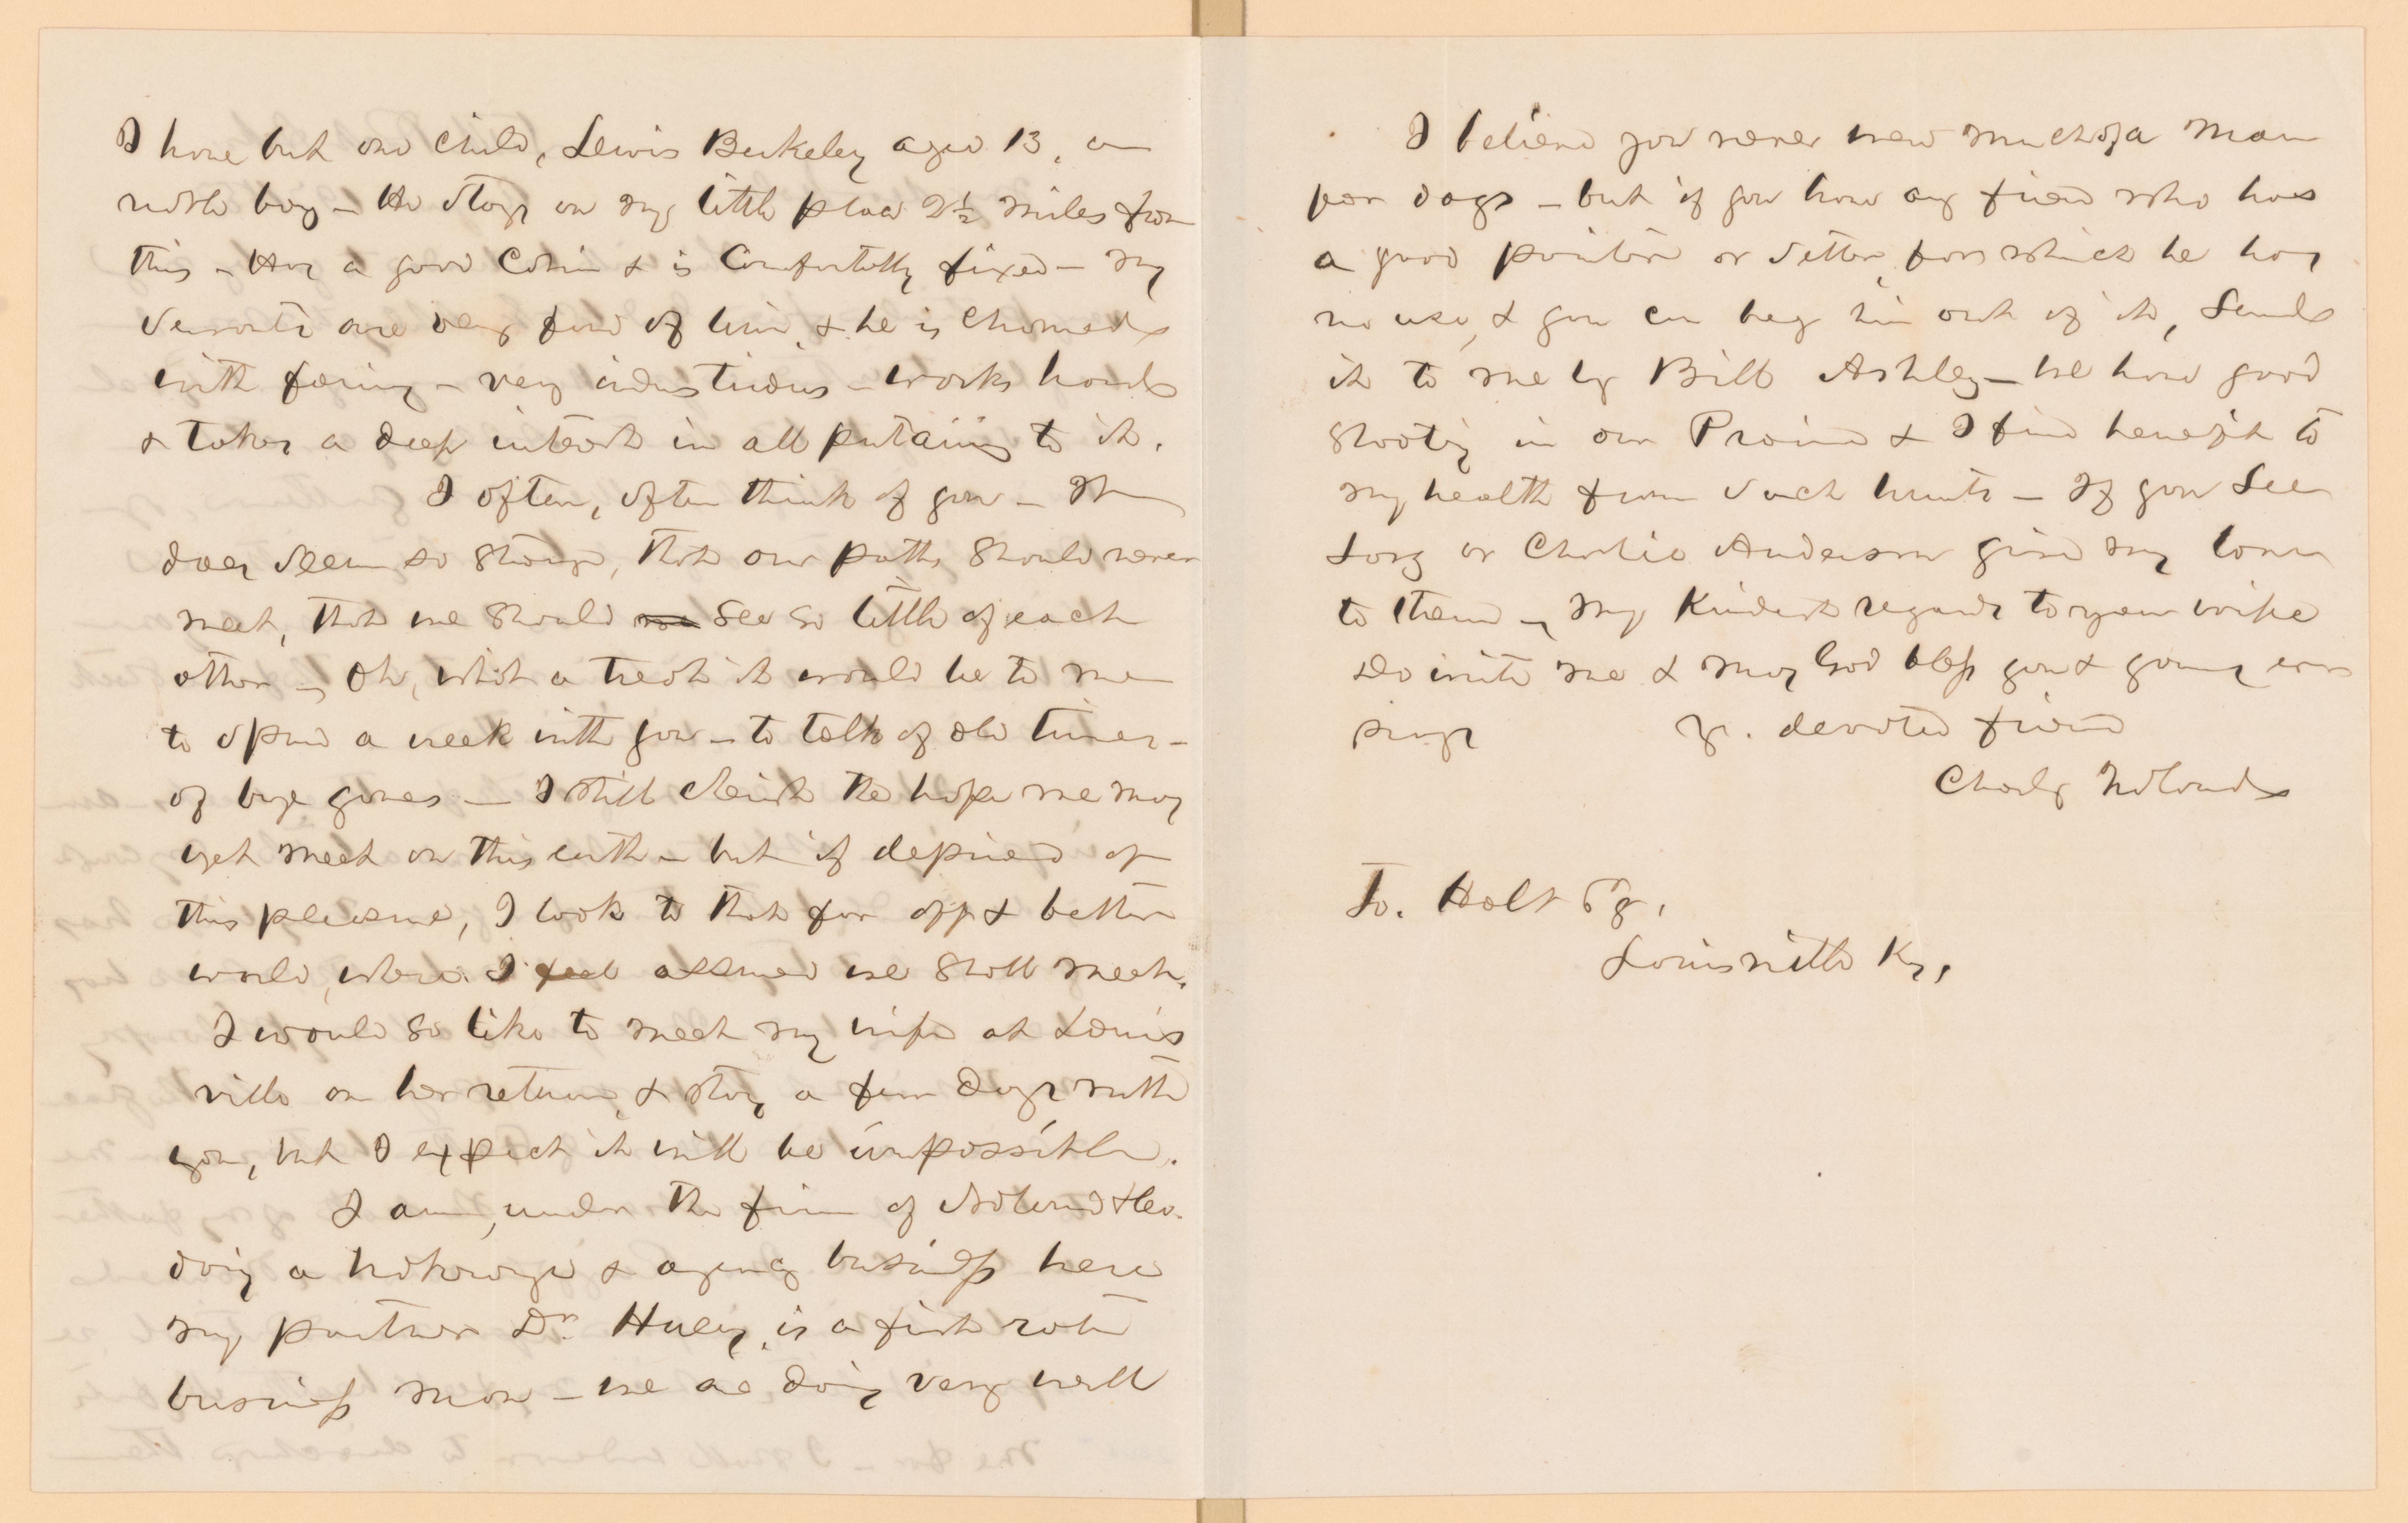 I have but one child, Lewis Berkeley aged 13, a
noble boy – He stays on my little place 2½ miles from
this – Has a good Cabin & is Comfortably fixed – My
Servants are very fond of him, & he is Charmed
with farming – very industrious – works hard
& takes a deep interest in all pertaining to it.
I often, often think of you – It
does seem so strange, that our paths should never
meet, that we should see so little of each
other – Oh, what a treat it would be to me
to spend a week with you – to talk of old times –
of bye gones – I still cherish the hope we may
yet meet on this earth – but if deprived of
this pleasure, I look to that far off & better
world, where I feel assured we shall meet.
I would so like to meet my wife at Louis
ville on her return, & stay a few days with
you, but I expect it will be impossible.
I am, under the firm of Noland & Co.
doing a brokerage & agency business here
my partner Dr. Huey, is a first rate
business man – we are doing very well
I believe you never were much of a man
for dogs – but if you know any friend who has
a good pointer or setter, for which he has
no use, & you can beg him out of it, Send
it to me by Bill Ashley – we have good
Shooting in our Prairies & I find benefit to
my health from such hunts – If you See
Larz or Charlie Anderson give my love
to them – My Kindest regards to your wife
Do write me & may God bless you & yours ever
prays Yr. devoted friend
Charly Noland
To. Holt Esq.
Louisville Ky,